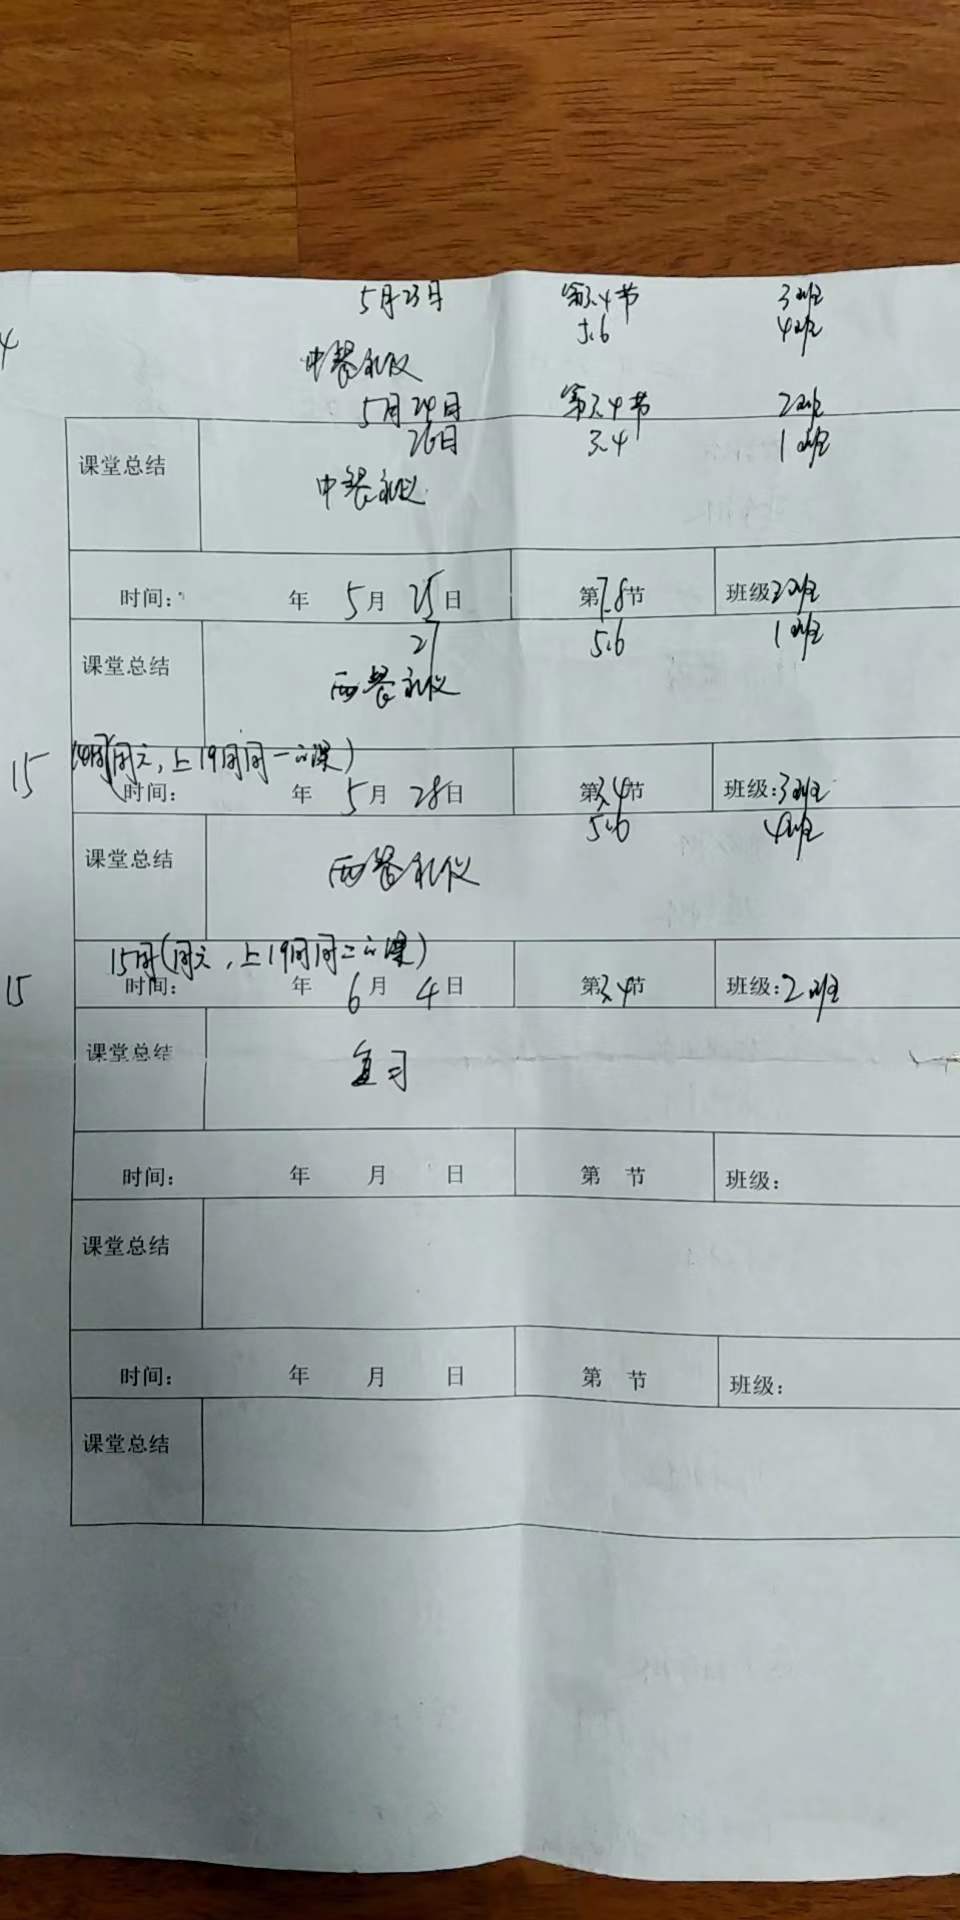 5月23日 第3.4节 3班
5.6 4班
4
中餐礼仪
5月24日 第3.4节 2班
26日 3.4 1班
课堂总结
中餐礼仪
时间: 年 5月 25日 第7.8节 班级2班
27 5.6 1班
课堂总结
西餐礼仪
15 (周六,上19周周一的课)
时间: 年 5月 28日 第3.4节 班级:3班
5.6 4班
课堂总结
西餐礼仪
15周(周六,上19周周二的课)
15 时间: 年 6月 4日 第3.4节 班级:2班
课堂总结
复习
时间: 年 月 日 第 节 班级:
课堂总结
时间: 年 月 日 第 节 班级:
课堂总结